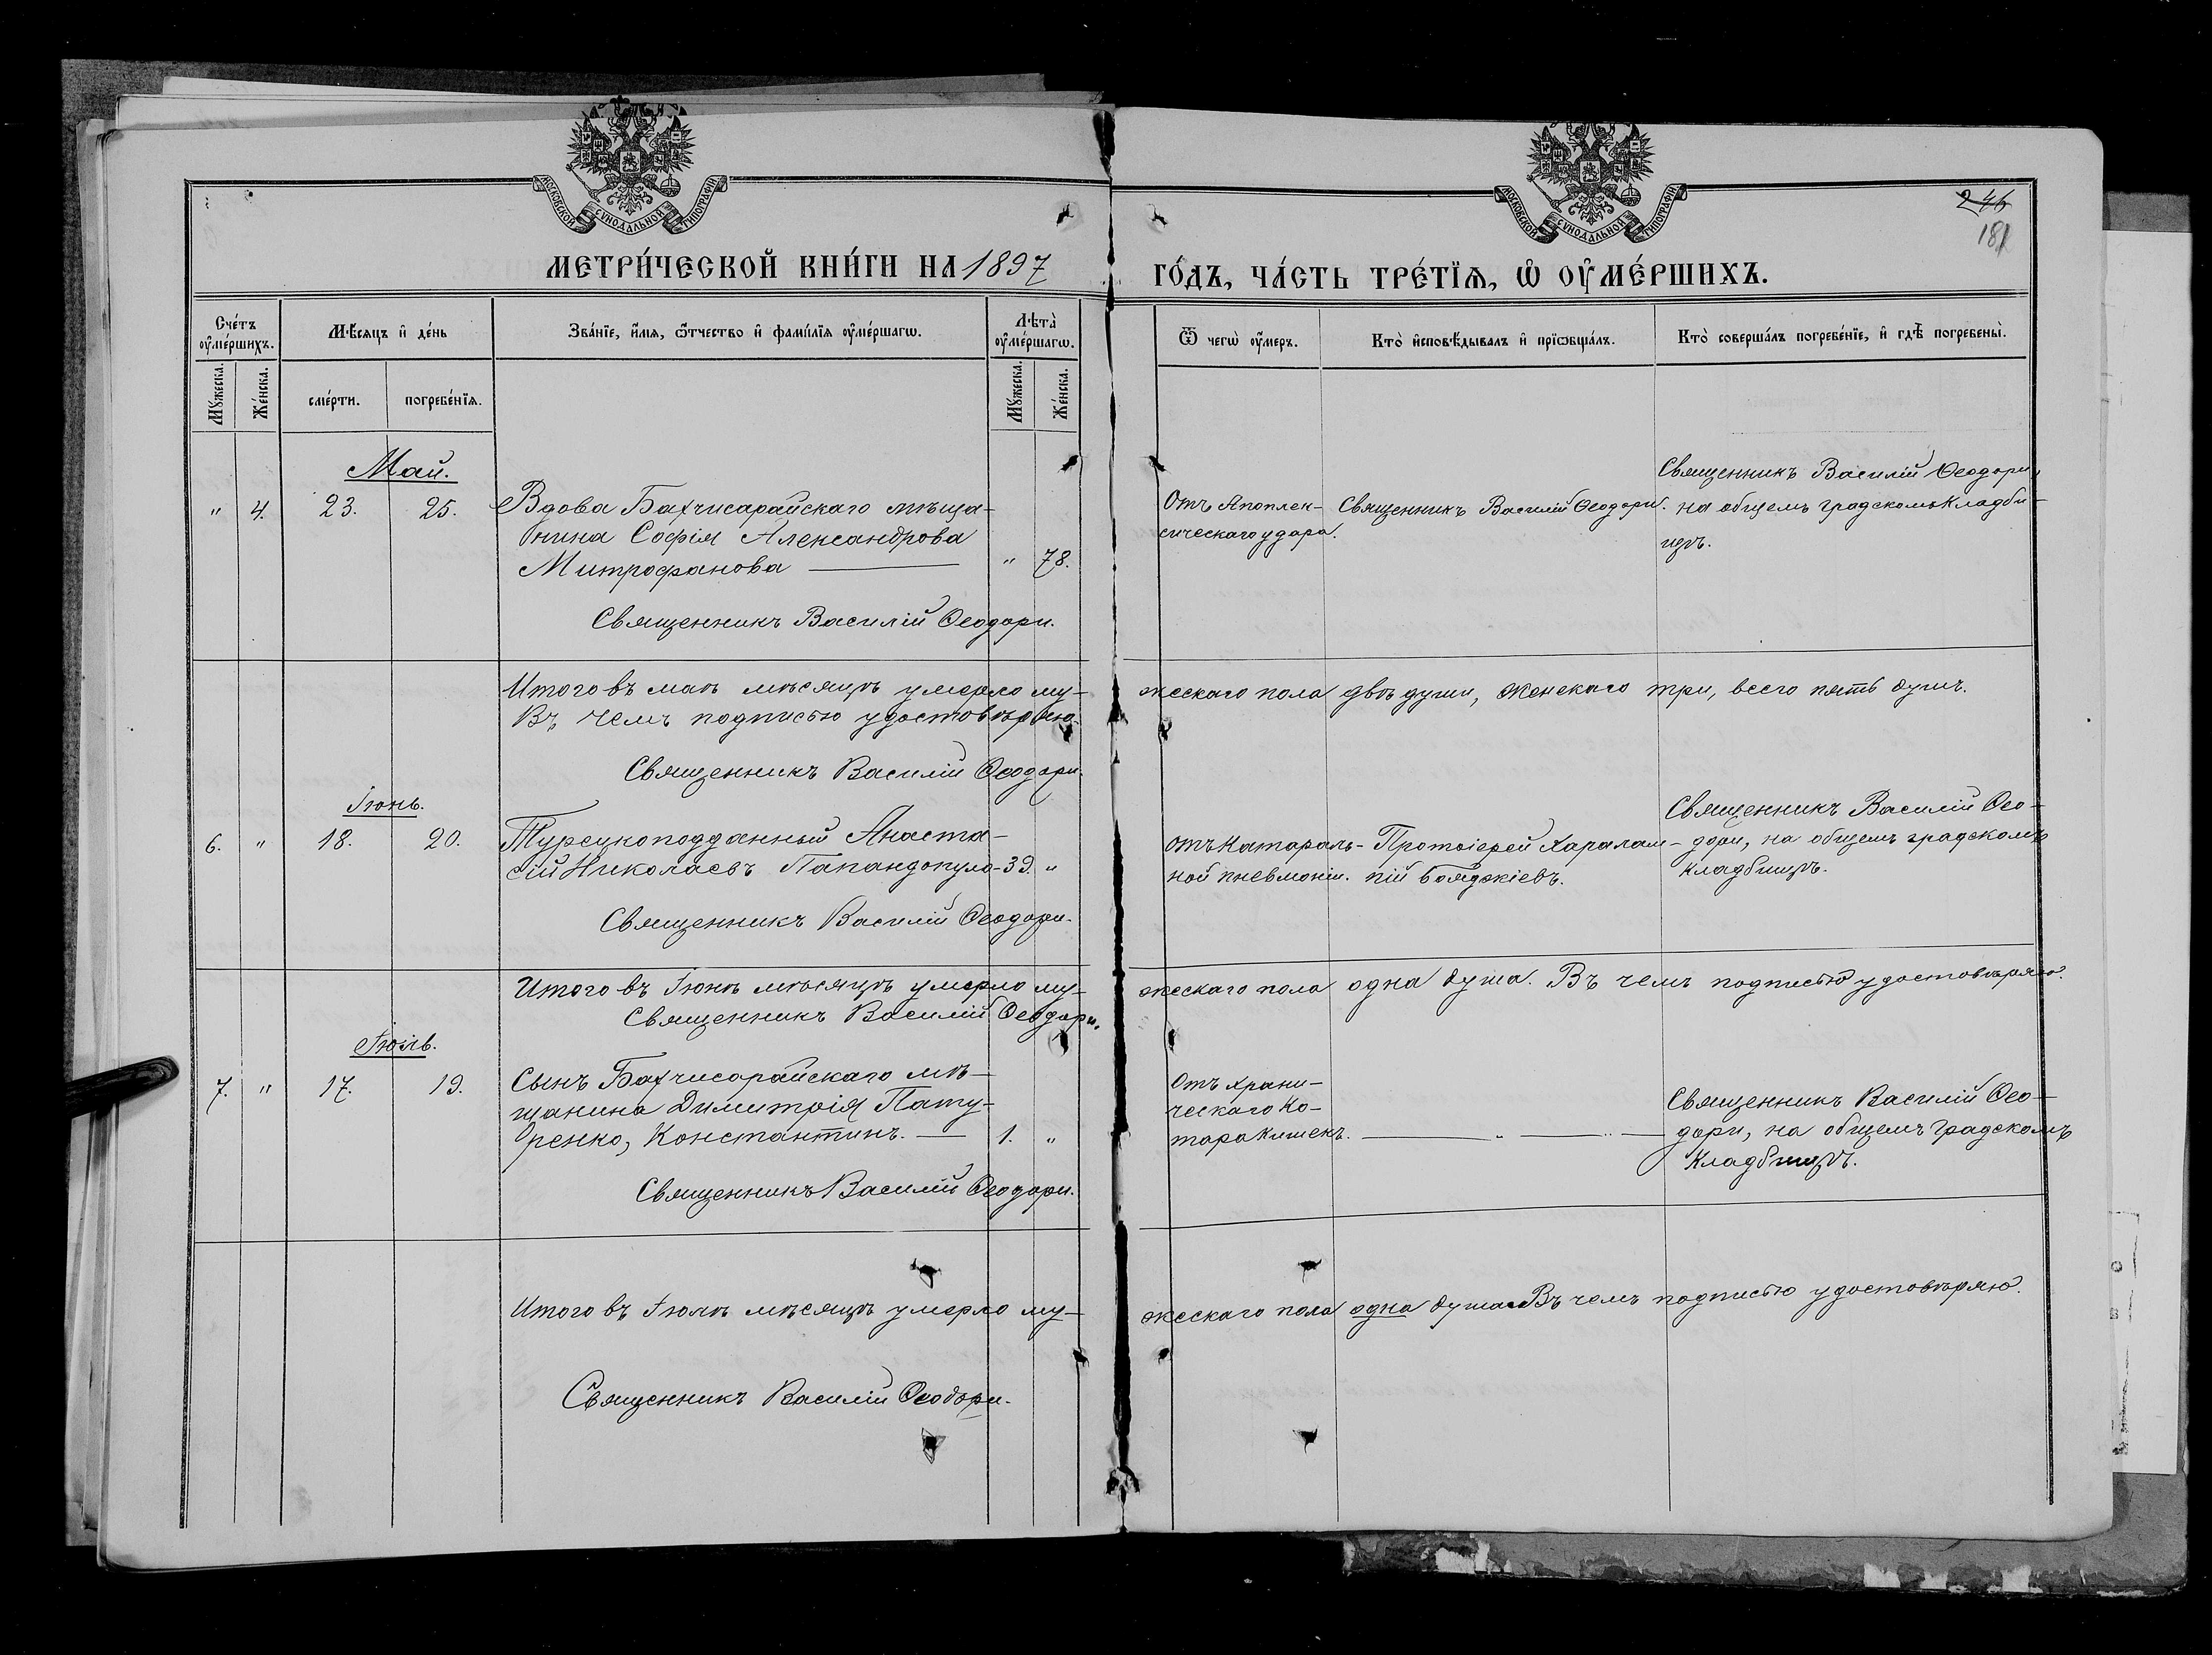 МОСКОВСКОЙ СѴНОДАЛЬНОЙ ТИПОГРАФІИ
МОСКОВСКОЙ СѴНОДАЛЬНОЙ ТИПОГРАФІИ
246
181
МЕТРИ́ЧЕСКОЙ КНИ́ГИ НА 1897 ГО́ДЪ, ЧА́СТЬ ТРЕ́ТЇѦ, Ѡ҆ ОУ҆МЕ́РШИХЪ.
Сче́тъ оу҆ме́ршихъ.
Мꙋ́жеска.
Же́нска.
Мѣ́сяцъ и҆ де́нь
сме́рти.
погребе́нїѧ.
Зва́нїе, и҆́мѧ, ѻ҆́тчество и҆ фами́лїѧ оу҆ме́ршагѡ.
Лѣта̀ оу҆ме́ршагѡ.
Мꙋ́жеска.
Же́нска.
Ѿ чегѡ̀ оу҆́меръ.
Кто̀ и҆сповѣ́дывалъ и҆ прїѡбща́лъ.
Кто̀ соверша́лъ погребе́нїе, и҆ гдѣ̀ погребены̀.
Май.
" 4. 23. 25. Вдова Бахчисарайскаго мѣща-
нина Софія Александрова
Митрофанова — " 78.
Отъ Апоплек-
сическаго удара.
Священникъ Василій Ѳеодори.
Священникъ Василій Ѳеодори,
на общемъ градскомъ кладби-
щѣ.
Священникъ Василій Ѳеодори.
Итого въ маѣ мѣсяцѣ умерло му-жескаго пола двѣ души, женскаго три, всего пять душъ.
Въ чемъ подписью удостовѣряю.
Священникъ Василій Ѳеодори.
Іюнь.
6. " 18. 20. Турецкоподданный Анаста-
сій Николаевъ Папандопуло - 39. "
Отъ Катараль-
ной пневмоніи.
Протоіерей Харалам-
пій Бояджіевъ.
Священникъ Василій Ѳео-
дори, на общемъ градскомъ
кладбищѣ.
Священникъ Василій Ѳеодори.
Итого въ Іюнѣ мѣсяцѣ умерло му-жескаго пола одна душа. Въ чемъ подписью удостовѣряю.
Священникъ Василій Ѳеодори.
Іюль.
7. " 17. 19. Сынъ Бахчисарайскаго мѣ-
щанина Димитрія Пату-
ренко, Константинъ. — 1. "
Отъ храни-
ческаго Ко-
тара Кишекъ. — " — " —
Священникъ Василій Ѳео-
дори, на общемъ градскомъ
Кладбищѣ.
Священникъ Василій Ѳеодори.
Итого въ Іюлѣ мѣсяцѣ умерло му-жескаго пола одна душа. Въ чемъ подписью удостовѣряю.
Священникъ Василій Ѳеодори.